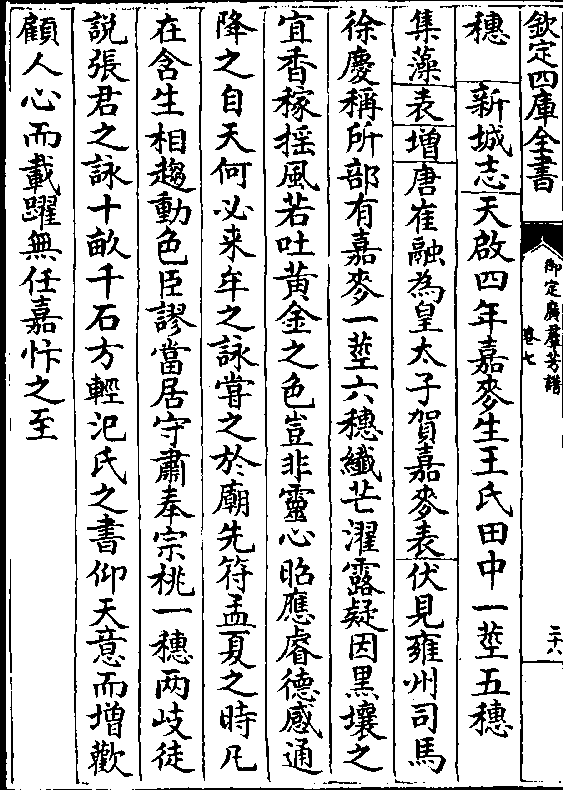 欽定四庫全書
御定廣羣芳譜
卷七
二十六
穗　新城志天啟四年嘉麥生王氏田中一莖五穗
集藻表增唐崔融為皇太子賀嘉麥表伏見雍州司馬
徐慶稱所部有嘉麥一莖六穗纖芒濯露疑因黑壤之
宜香稼揺風若吐黄金之色豈非靈心昭應睿德感通
降之自天何必来牟之詠嘗之於廟先符孟夏之時凡
在含生相趨動色臣謬當居守肅奉宗祧一穗两岐徒
說張君之詠十畝千石方輕氾氏之書仰天意而增歡
顧人心而載躍無任嘉忭之至